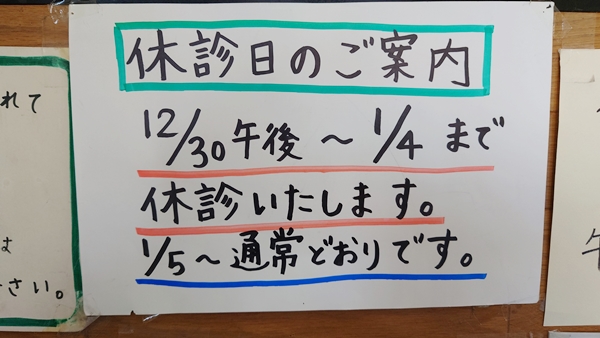 休診日のご案内
12/30午後 ～ 1/4 まで
休診いたします。
1/5～通常どおりです。
れて
は
さい。
午